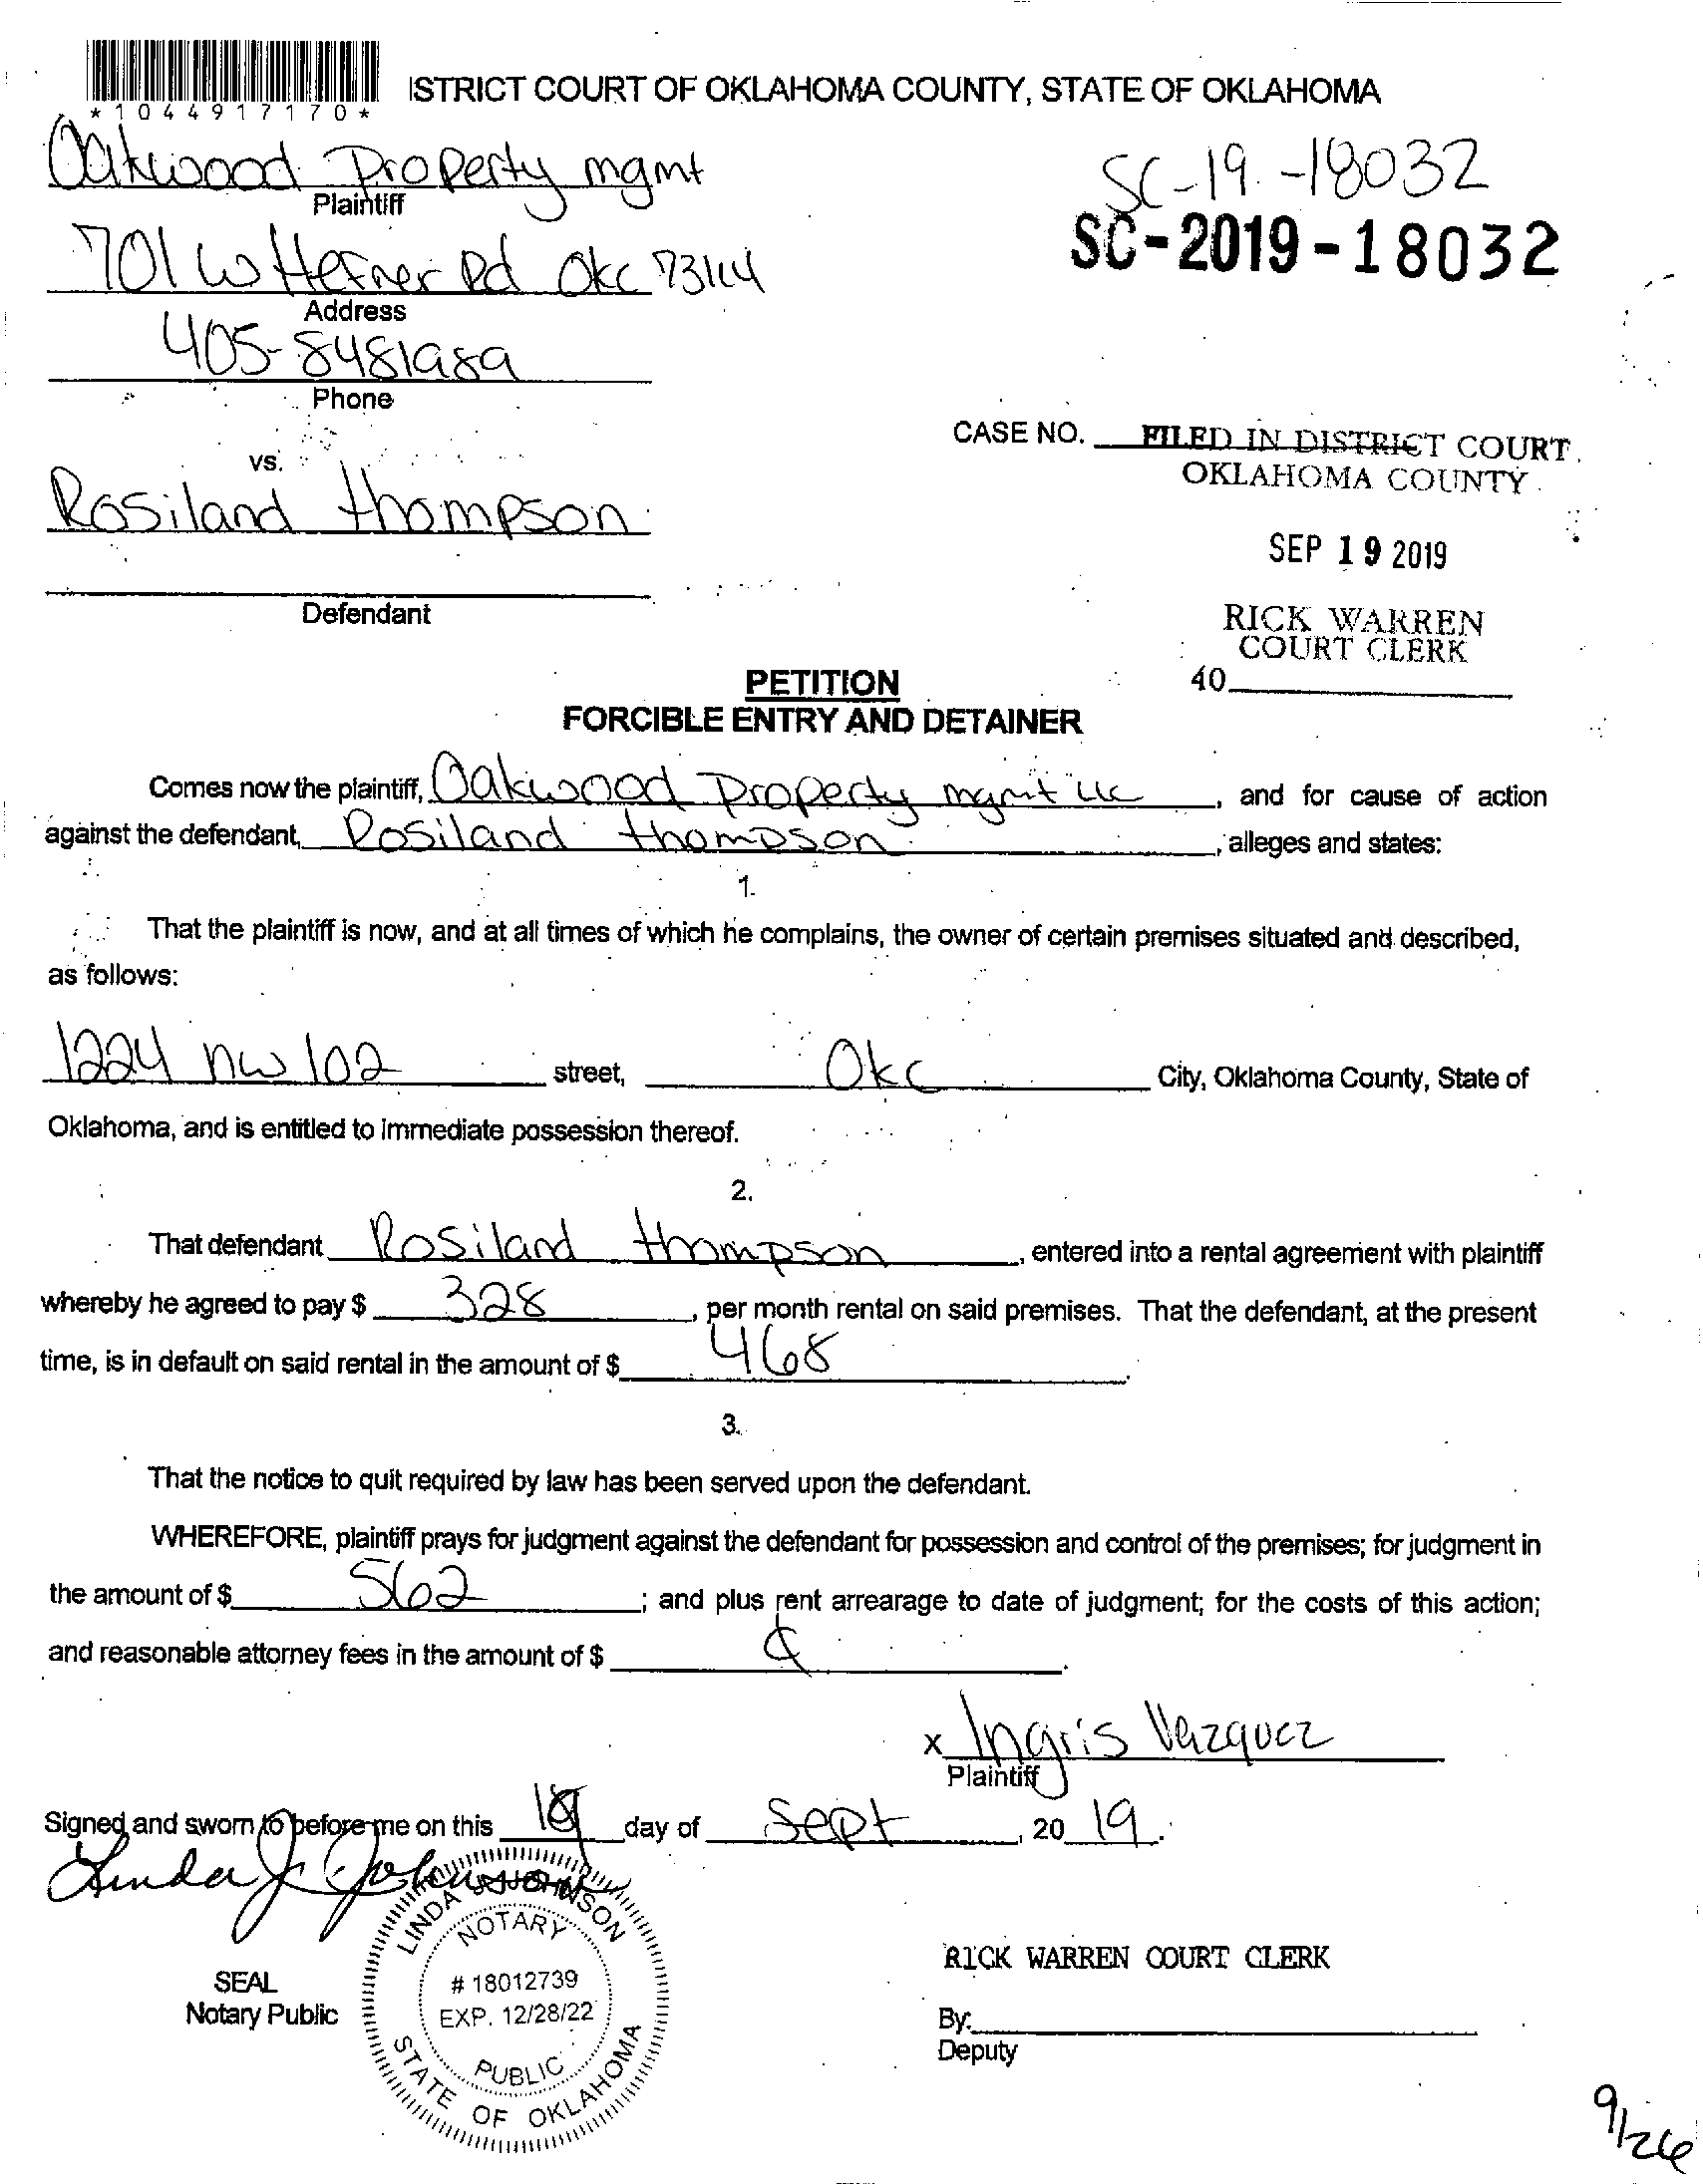 *1044917170*
ISTRICT COURT OF OKLAHOMA COUNTY, STATE OF OKLAHOMA
Oakwood Property mgmt
Plaintiff
SC-19-18032
SC-2019-18032
701 W Hefner Rd Okc 73114
Address
405-8481989
Phone
CASE NO. FILED IN DISTRICT COURT
OKLAHOMA COUNTY
vs.
Rosiland thompson
SEP 19 2019
Defendant
RICK WARREN
COURT CLERK
40
PETITION
FORCIBLE ENTRY AND DETAINER
Comes now the plaintiff, Oakwood Property mgmt llc, and for cause of action
against the defendant, Rosiland thompson, alleges and states:
1.
That the plaintiff is now, and at all times of which he complains, the owner of certain premises situated and described,
as follows:
1224 nw 102 street, Okc City, Oklahoma County, State of
Oklahoma, and is entitled to immediate possession thereof.
2.
That defendant Rosiland thompson, entered into a rental agreement with plaintiff
whereby he agreed to pay $ 328, per month rental on said premises. That the defendant, at the present
time, is in default on said rental in the amount of $ 468.
3.
That the notice to quit required by law has been served upon the defendant.
WHEREFORE, plaintiff prays for judgment against the defendant for possession and control of the premises; for judgment in
the amount of $ 562; and plus rent arrearage to date of judgment; for the costs of this action;
and reasonable attorney fees in the amount of $
x Ingris Vazquez
Plaintiff
Signed and sworn to before me on this 18 day of Sept, 2019.
Linda J Johnson
LINDA J JOHNSON
NOTARY
# 18012739
EXP. 12/28/22
PUBLIC
STATE OF OKLAHOMA
SEAL
Notary Public
RICK WARREN COURT CLERK
By:
Deputy
9/26